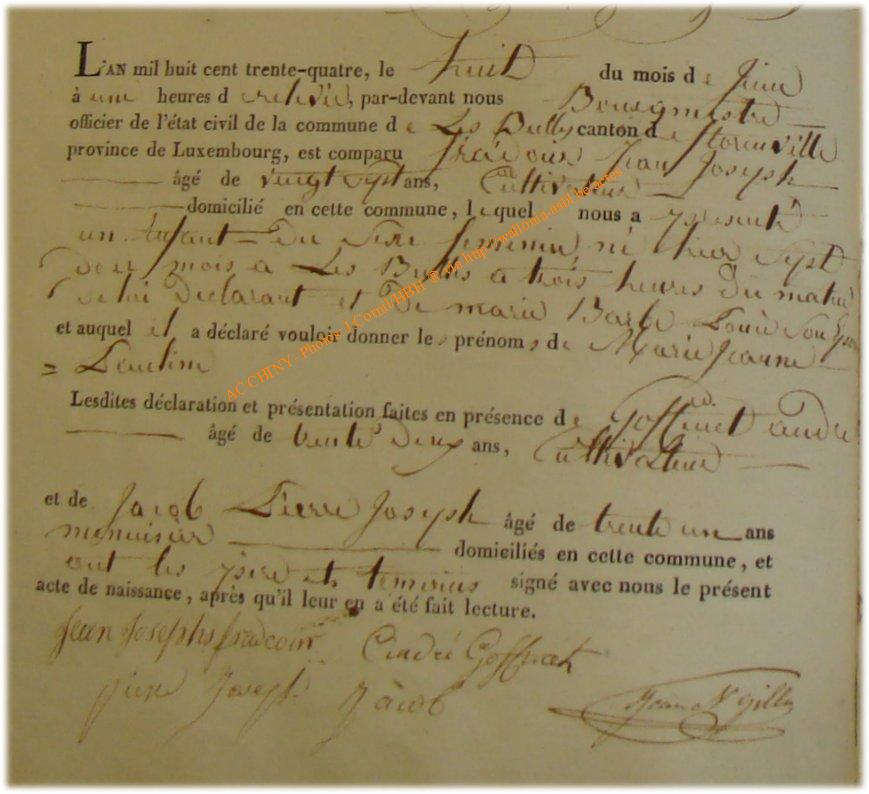 L'AN mil huit cent trente-quatre, le huit du mois de Juin
à une heures de relevée, par-devant nous Bourgmestre
officier de l'état civil de la commune de Les Bulles canton de florenville
province de Luxembourg, est comparu fradcourt Jean Joseph
âgé de vingt sept ans, Cultivateur
domicilié en cette commune, lequel nous a présenté
un Enfant du Sexe feminin né hier Sept
du mois a Les Bulles a trois heures du matin
de lui Declarant et De marie Barbe Son Epouse
et auquel il a déclaré vouloir donner les prénoms de Marie Jeanne
= Leontine
Lesdites déclaration et présentation faites en présence de Goffinet andré
âgé de trente Deux ans, Cultivateur
et de Jacob Pierre Joseph âgé de trente un ans
menuisier domiciliés en cette commune, et
ont les pere et temoins signé avec nous le présent
acte de naissance, après qu'il leur en a été fait lecture.
Jean Joseph fradcourt André Goffinet
pierre Joseph Jacob Jean N Gillet
AC CHINY - Photos